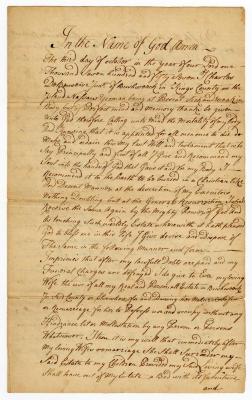 In the Name of God Amen
The third day of october in the year of our Lord one
Thousand Seven hundred and fifty Seven I Charles
of Bushwick in Kings County on the
Island Nassau Yeoman being at Present Sick and weak in
Body but of Perfect mind and memory thanks be given
unto God therefore Calling unto mind the Mortality of my body
and Knowing that it is appointed for all men once to die
Make and ordain this my last Will and testament that is to
Say Principally and first of all I Give and Recommend my
Soul into the hands of God that Gave it and for my Body I
Recommend it to the Earth to be buried in a Christian like
and Decent Manner at the discretion of my Executors
Nothing Doubting but at the General Resurrection I shall
Receive the Same Again by the Mighty Power of God and
as touching Such worldly Estate wherewith it hath pleased
God to bless me in this life I Give devise and Dispose of
The Same in the following Manner and form
Imprimis that after my lawfull Debts are paid and my
Funeral Charges are defrayed I do give to Even my loving
Wife the use of all my Real and Personall Estate in Bushwick
in Said County or Elsewhere for and During her
or Remarriage for her to Possess and occupy without any
Hindrance let or Molestation by any Person or Persons
Whatsoever Then it is my will that immediately after
My loving Wifes remarriage She Shall Surrender my
Said Estate to my Children Provided my Said loving wife
Shall have out of my Estate a Bed with its furniture
and